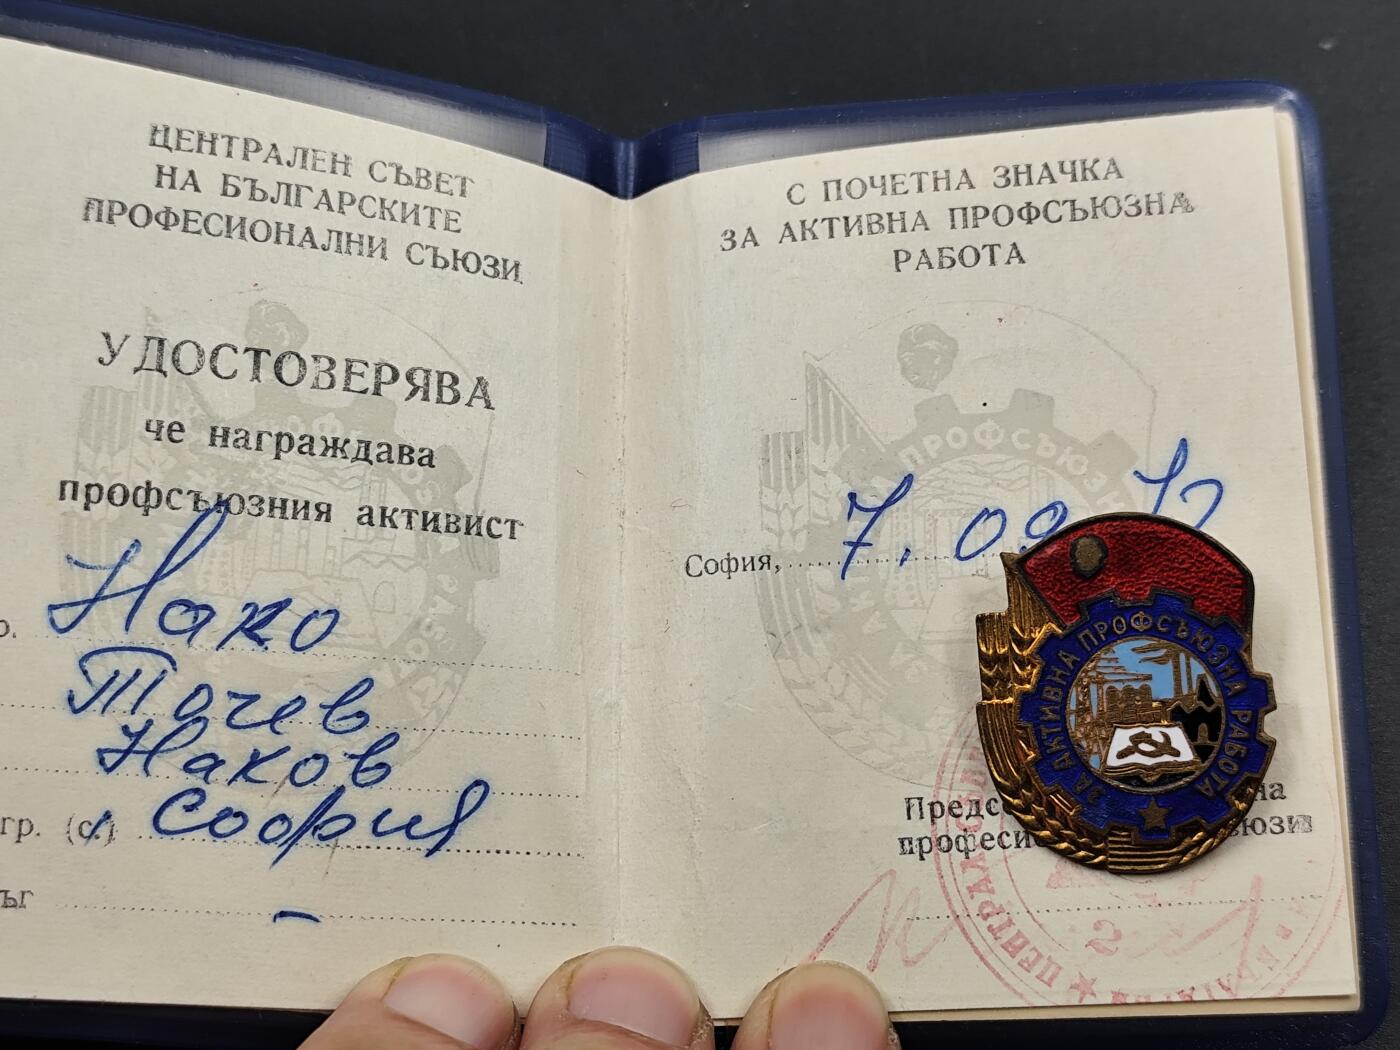 ЦЕНТРАЛЕН СЪВЕТ
НА БЪЛГАРСКИТЕ
ПРОФЕСИОНАЛНИ СЪЮЗИ
УДОСТОВЕРЯВА
че награждава
профсъюзния активист
Нако
Точев
Наков
гр. (с.) София
С ПОЧЕТНА ЗНАЧКА
ЗА АКТИВНА ПРОФСЪЮЗНА
РАБОТА
София, 7.09
ЗА АКТИВНА ПРОФСЪЮЗНА РАБОТА